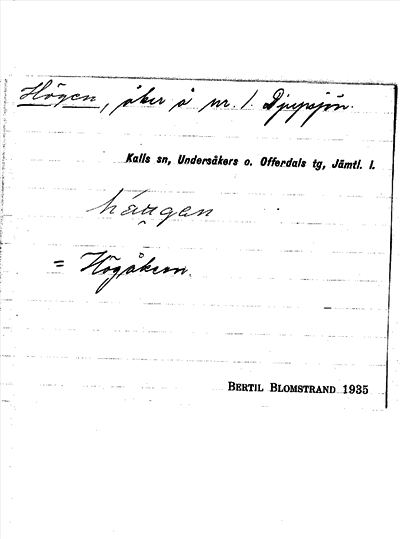 Högen, åker å nr. 1 Djupsjön.
Kalls sn, Undersåkers o. Offerdals tg, Jämtl. l.
háu̯gen
= Högåkern.
BERTIL BLOMSTRAND 1935